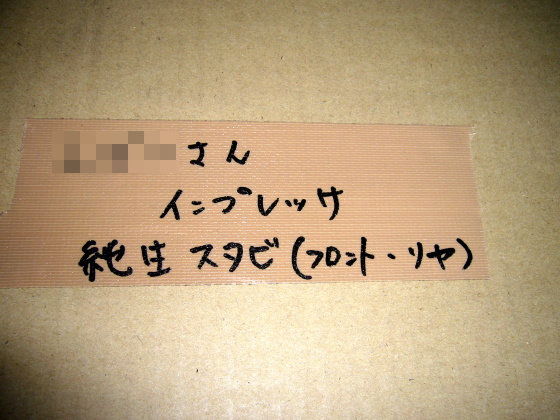 さん
インプレッサ
純生 スタビ(フロント・リヤ)